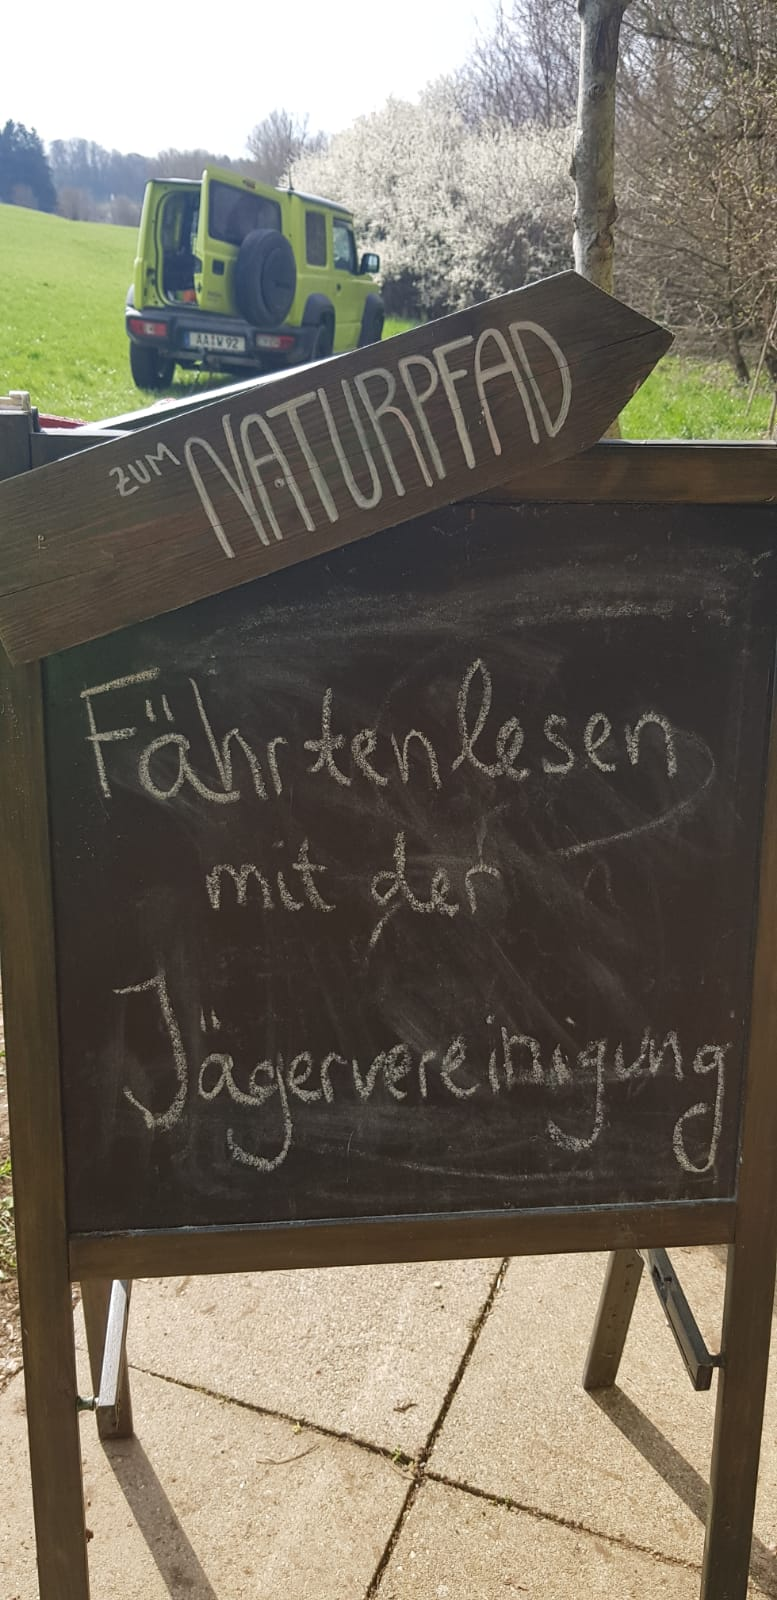 AA W 92
ZUM NATURPFAD
Fährtenlesen
mit der
Jägervereinigung